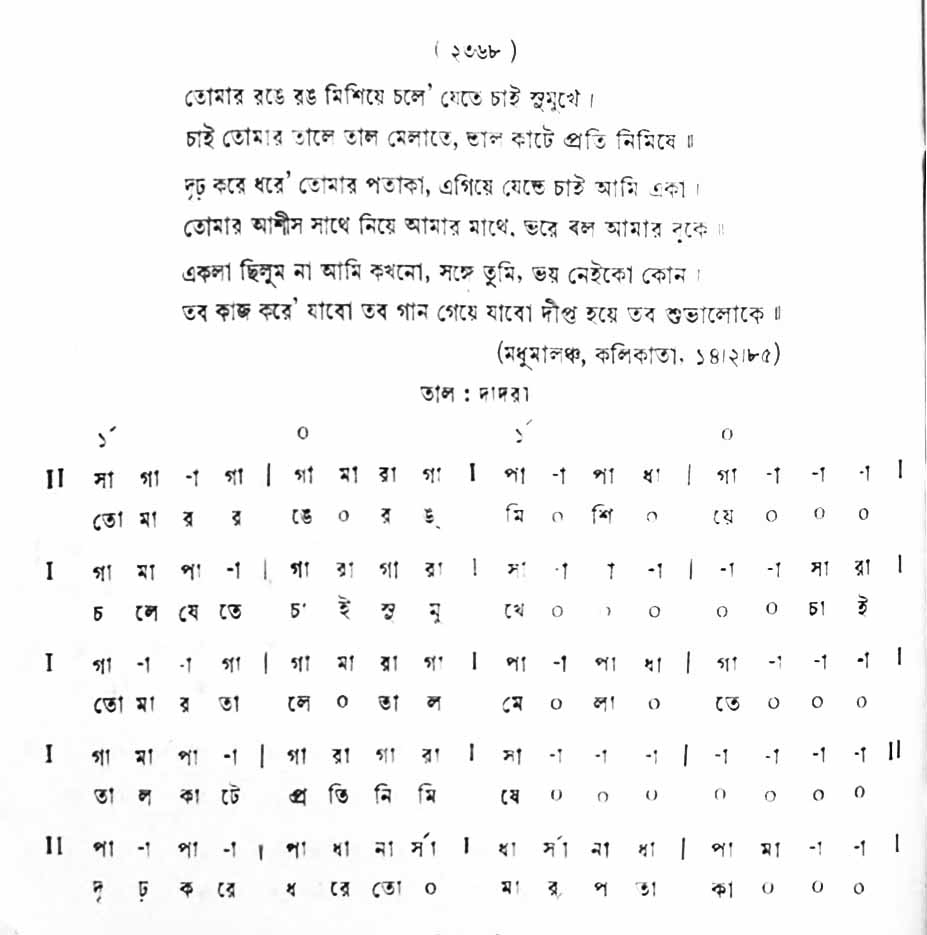 ( ২৩৬৮ )
তোমার রঙে রঙ মিশিয়ে চলে' যেতে চাই সুমুখে ।
চাই তোমার তালে তাল মেলাতে, তাল কাটে প্রতি নিমিষে ॥
দৃঢ় করে ধরে' তোমার পতাকা, এগিয়ে যেতে চাই আমি একা ।
তোমার আশীস সাথে নিয়ে আমার মাথে, ভরে বল আমার বুকে ॥
একলা ছিলুম না আমি কখনো, সঙ্গে তুমি, ভয় নেইকো কোন ।
তব কাজ করে' যাবো তব গান গেয়ে যাবো দীপ্ত হয়ে তব শুভালোকে ॥
(মধুমালঞ্চ, কলিকাতা, ১৪।২।৮৫)
তাল : দাদরা
১´ ০ ১´ ০
II সা গা -া গা | গা মা রা গা I পা -া পা ধা | গা -া -া -া I
তো মা র র ঙে ০ র ঙ্ মি ০ শি ০ য়ে ০ ০ ০
I গা মা পা -া | গা রা গা রা I সা -া া -া | -া -া সা রা I
চ লে যে তে চা ই সু মু খে ০ ০ ০ ০ ০ চা ই
I গা -া -া গা | গা মা রা গা I পা -া পা ধা | গা -া -া -া I
তো মা র তা লে ০ তা ল মে ০ লা ০ তে ০ ০ ০
I গা মা পা -া | গা রা গা রা I সা -া -া -া | -া -া -া -া II
তা ল কা টে প্র তি নি মি ষে ০ ০ ০ ০ ০ ০ ০
II পা -া পা -া । পা ধা না র্সা I ধা র্সা না ধা | পা মা -া -া I
দৃ ঢ় ক রে ধ রে তো ০ মা র্ প তা কা ০ ০ ০